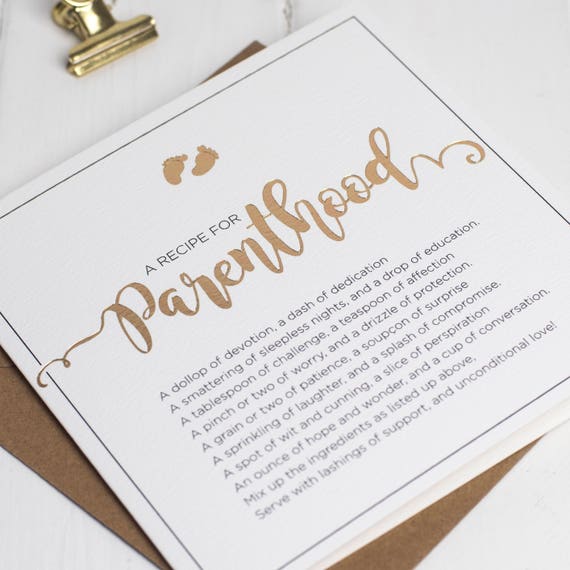 A RECIPE FOR
Parenthood
A dollop of devotion, a dash of dedication
A smattering of sleepless nights, and a drop of education.
A tablespoon of challenge, a teaspoon of affection
A pinch or two of worry, and a drizzle of protection.
A grain or two of patience, a soupçon of surprise
A sprinkling of laughter, and a splash of compromise.
A spot of wit and cunning, a slice of perspiration
An ounce of hope and wonder, and a cup of conversation.
Mix up the ingredients as listed up above,
Serve with lashings of support, and unconditional love!